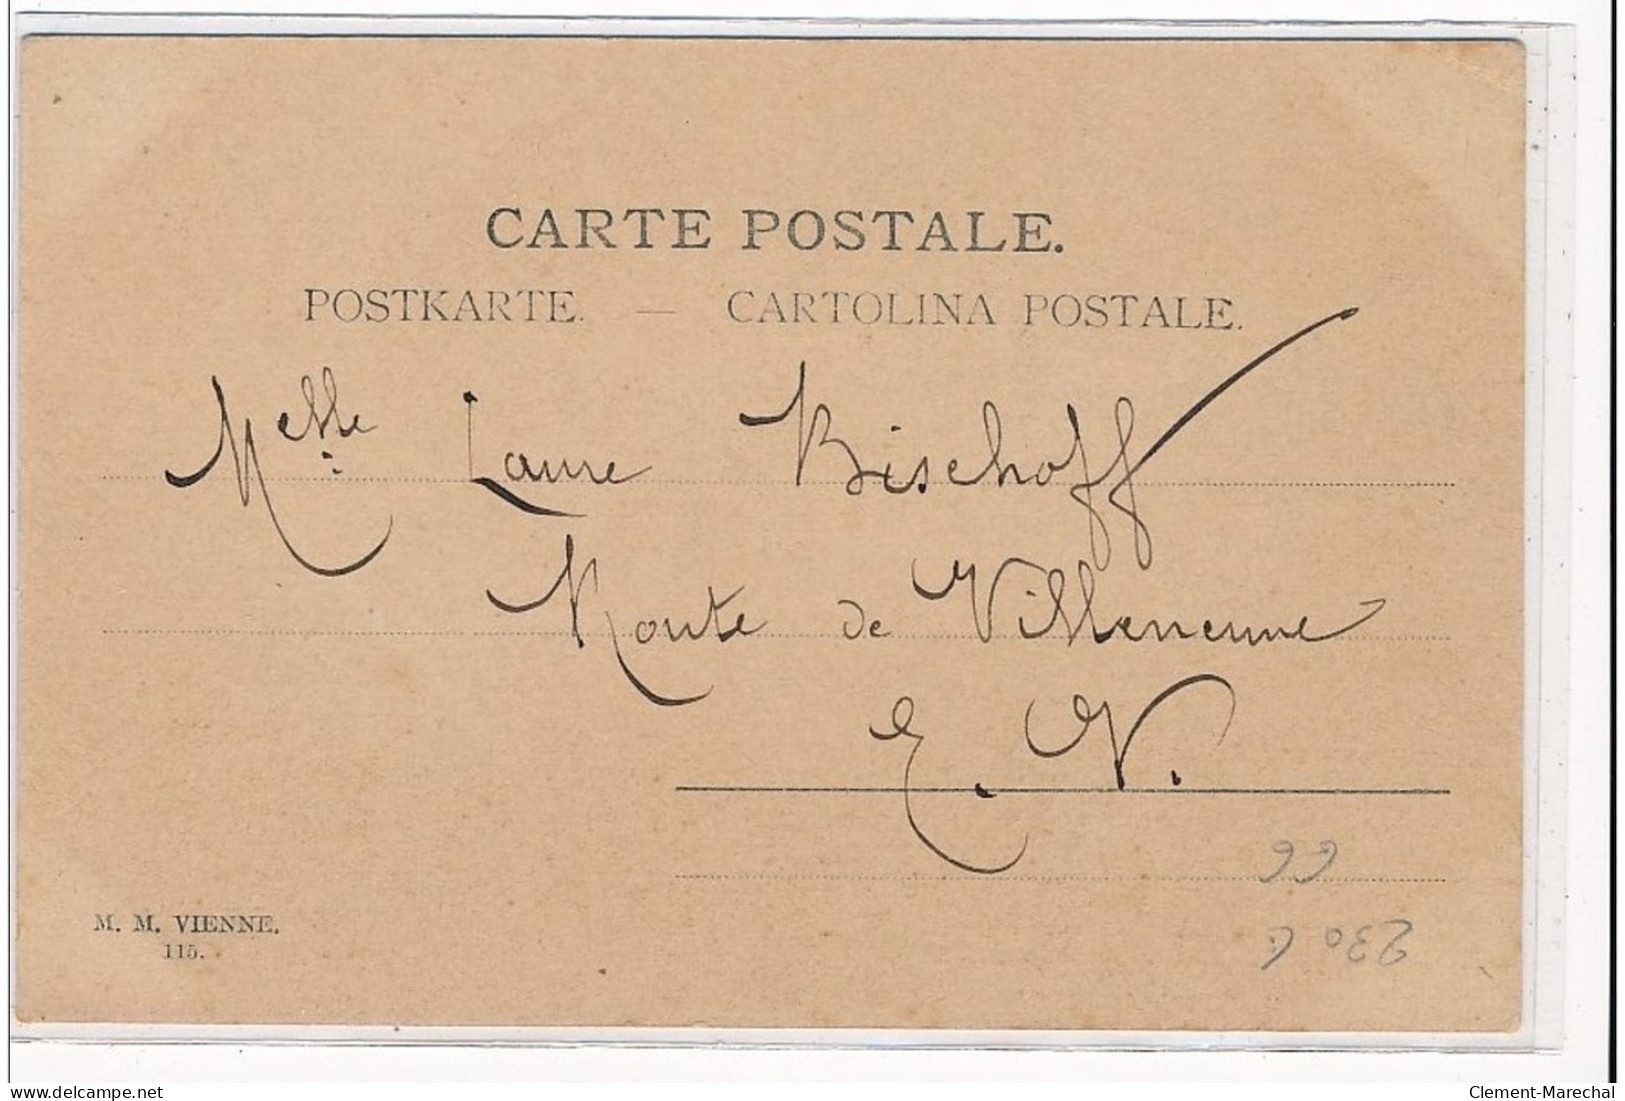 CARTE POSTALE.
POSTKARTE. — CARTOLINA POSTALE.
Melle Laure Bischoff
Route de Villeneuve
E. V.
M. M. VIENNE.
115.
99
230
delcampe.net
Clement-Marechal